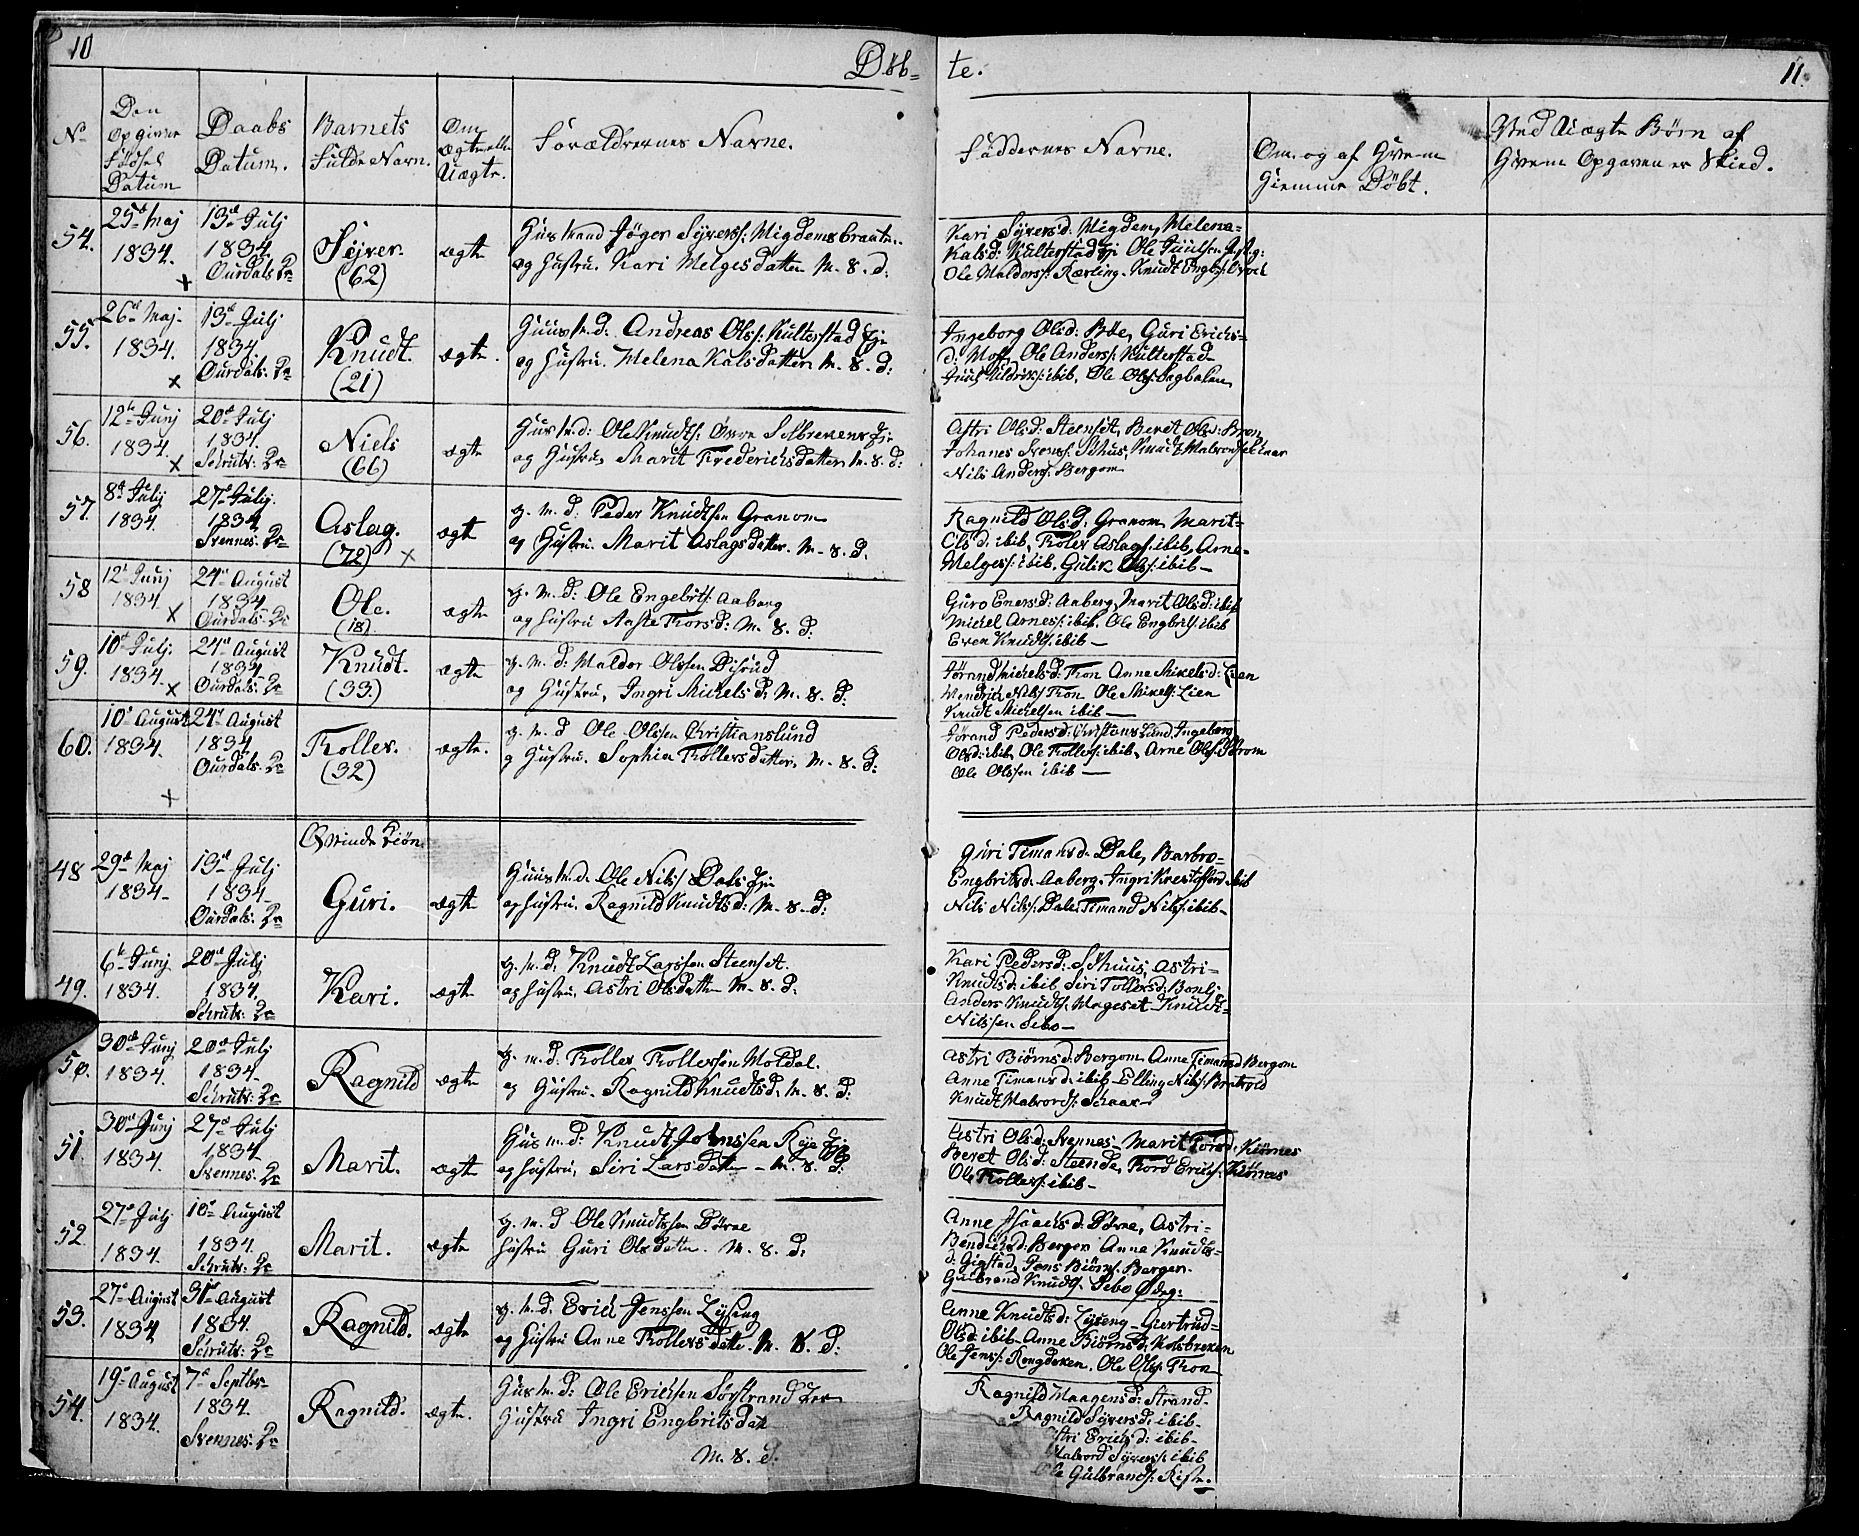 10
Døb=
te.
11.
No
Den Opgivne Fødsel Datum
Daabs Datum.
Barnets Fulde Navn.
Om Ægte eller Uægte.
Forældrenes Navne.
Fadderнes Navne.
Om og af Hvem Hiemme Døbt.
Ved Uægte Børn af Hvem Opgaven er Skied.
54. 25de Maj 1834. 13de Julj 1834 Ourdals: Ke Siver. (62) ægte
og Hustru. Kari Melgesdatter M. 8. d:
Kari Siversd: Migden, Melena=
Ole Haldors: Kærling. Knudt
55. 26de Maj 1834. 13de Julj 1834 Ourdals: Ke Knudt. (21) ægte.
Huusm.d: Andreas Ols: Kulterstad Eje
og Hustru. Melena Kalsdatter M. 8. d:
Ingeborg Olsd: Bøe, Guri Erichs=
d: Moe, Ole Anders: Kulterstad
ibib, Ole Ols:
56. 12te Junj 1834. 20de Julj 1834. Schruts: Ke Niels (66) ægte
Husm.d: Ole Knudts:
og Hustru, Marit Frederichsdatter M. 8. d:
Astri Olsd: Steenset, Beret Olsd:
Johanes
Nils Anders: Bergom
57. 8de Julj 1834. 27de Julj. 1834 Svennes. Ke Aslag. (72) ægte
H. M. d: Peder Knudtsen Granom
og Hustru. Marit Aslagsdatter. M. 8. d.
Ragnild Olsd: Granom, Marit=
Olsd: ibib, Tholer Aslags: ibib, Arne=
Melges: ibib, Gulik Ols: ibib
58 12te Junj 1834 24de August 1834 Ourdals: Ke Ole. (18) ægte
H. M. d: Ole Engebrits: Aaberg
og Hustru Aaste Thorsd: M. 8. d:
Guro Enersd: Aaberg, Marit Olsd: ibib
Mickel Arnes: ibib, Ole Engbrits: ibib
Even Knudts: ibib
59. 10de Julj. 1834. 24de August 1834 Ourdals: Ke Knudt. (33) ægte
H. M. d: Haldor Olssen Disrud
og Hustru, Ingri Mickelsd: M. 8. d:
Jørand Mickelsd: Thon Anne Mikelsd: Lien
Hendrich Nils: Thon Ole Mikels: Lien
Knudt Mickelsen ibib
60. 10de August 1834. 24de August 1834 Ourdals: Ke Tholler. (32) ægte.
H. M. d Ole Olssen Christianslund
og Hustru. Sophia Thollersdatter, M. 8. d:
Jørand Pedersd: Christians Lund, Ingeborg
Olsd: ibib, Ole Thollers: ibib, Arne Ols: Strom
Ole Olssen ibib
Qvinde Kiøn
48 29de Maj 1834 13de Julj 1834 Ourdals: Ke Guri. ægte
Huusm.d. Ole Nils: Dals Eje
og Hustru. Ragnild Knudtsd: M. 8. d:
Guri Timansd: Dale, Barbro=
Engbritsd: Aaberg. Ingri Krestofferd: ibib
Nils Nils: Dale, Timand Nils: ibib
49. 6te Junj 1834. 20de Julj 1834. Schruts: Ke Kari. ægte
H. M. d. Knudt Larssen Steenset.
og Hustru, Astri Olsdatter M. 8. d.
Kari Pedersd: Sæhuus, Astri=
Knudtsd: ibib Siri Tollersd:
Anders Knudts: Hageset Knudt=
Nilssen Sebo
50. 30de Junj 1834. 20de Julj 1834 Schruts: Ke Ragnild ægte
H. M. d. Tholler Thollerssen Moldal.
og Hustru. Ragnild Knudtsd. M. 8. d:
Astri Biørnsd: Bergom Anne Timansd Bergom
Anne Timansd: ibib Elling Nils: Bratvold
Knudt
51. 30de Junj 1834. 27de Julj 1834. Svennes: Ke Marit. ægte
Husm.d: Knudt Johnssen Røje Eje
og Hustru, Siri Larsdatter M. 8. d:
Astri Olsd: Svennes Marit Thordsd: Kiørnes
Beret Olsd: Steende, Thord Erichs: Kiørnes
Ole Thollers: ibib
52. 27de Julj 1834. 10de August 1834. Schruts: Ke Marit. ægte
H. M. d Ole Knudtssen Dørne
Hustru Guri Olsdatter. M. 8. d:
Anne Isaachsd: Dørne, Astri=
Bendichsd: Berger Anne Knudts=
d: Gigstad, Jens Biørns: Berger.
Gulbrand Knudts: Sebo Ødeg:
53. 27de August 1834 31te August 1834. Schruts: Ke Ragnild. ægte
H. M. d. Erich Jenssen Lyseng
og Hustru Anne Thollersdatte. M. 8. d:
Anne Knudtsd: Lyseng Giertrud=
Olsd: ibib Anne Biørnsd: Kolsbreken
Ole Jens: Rengdeken. Ole Ols: Thon
54. 19de August 1834. 7de Septbr 1834. Svennes: Ke Ragnild. ægte.
Husm.d: Ole Erichsen Sørstrand
Hustru Ingri Engbritsdat
M. 8. d.
Ragnild Haagensd: Strand
Ragnild Siversd: ibib
stri Erichsd: ibib
Halvord Sivers: ibib
Ole Gulbrands: